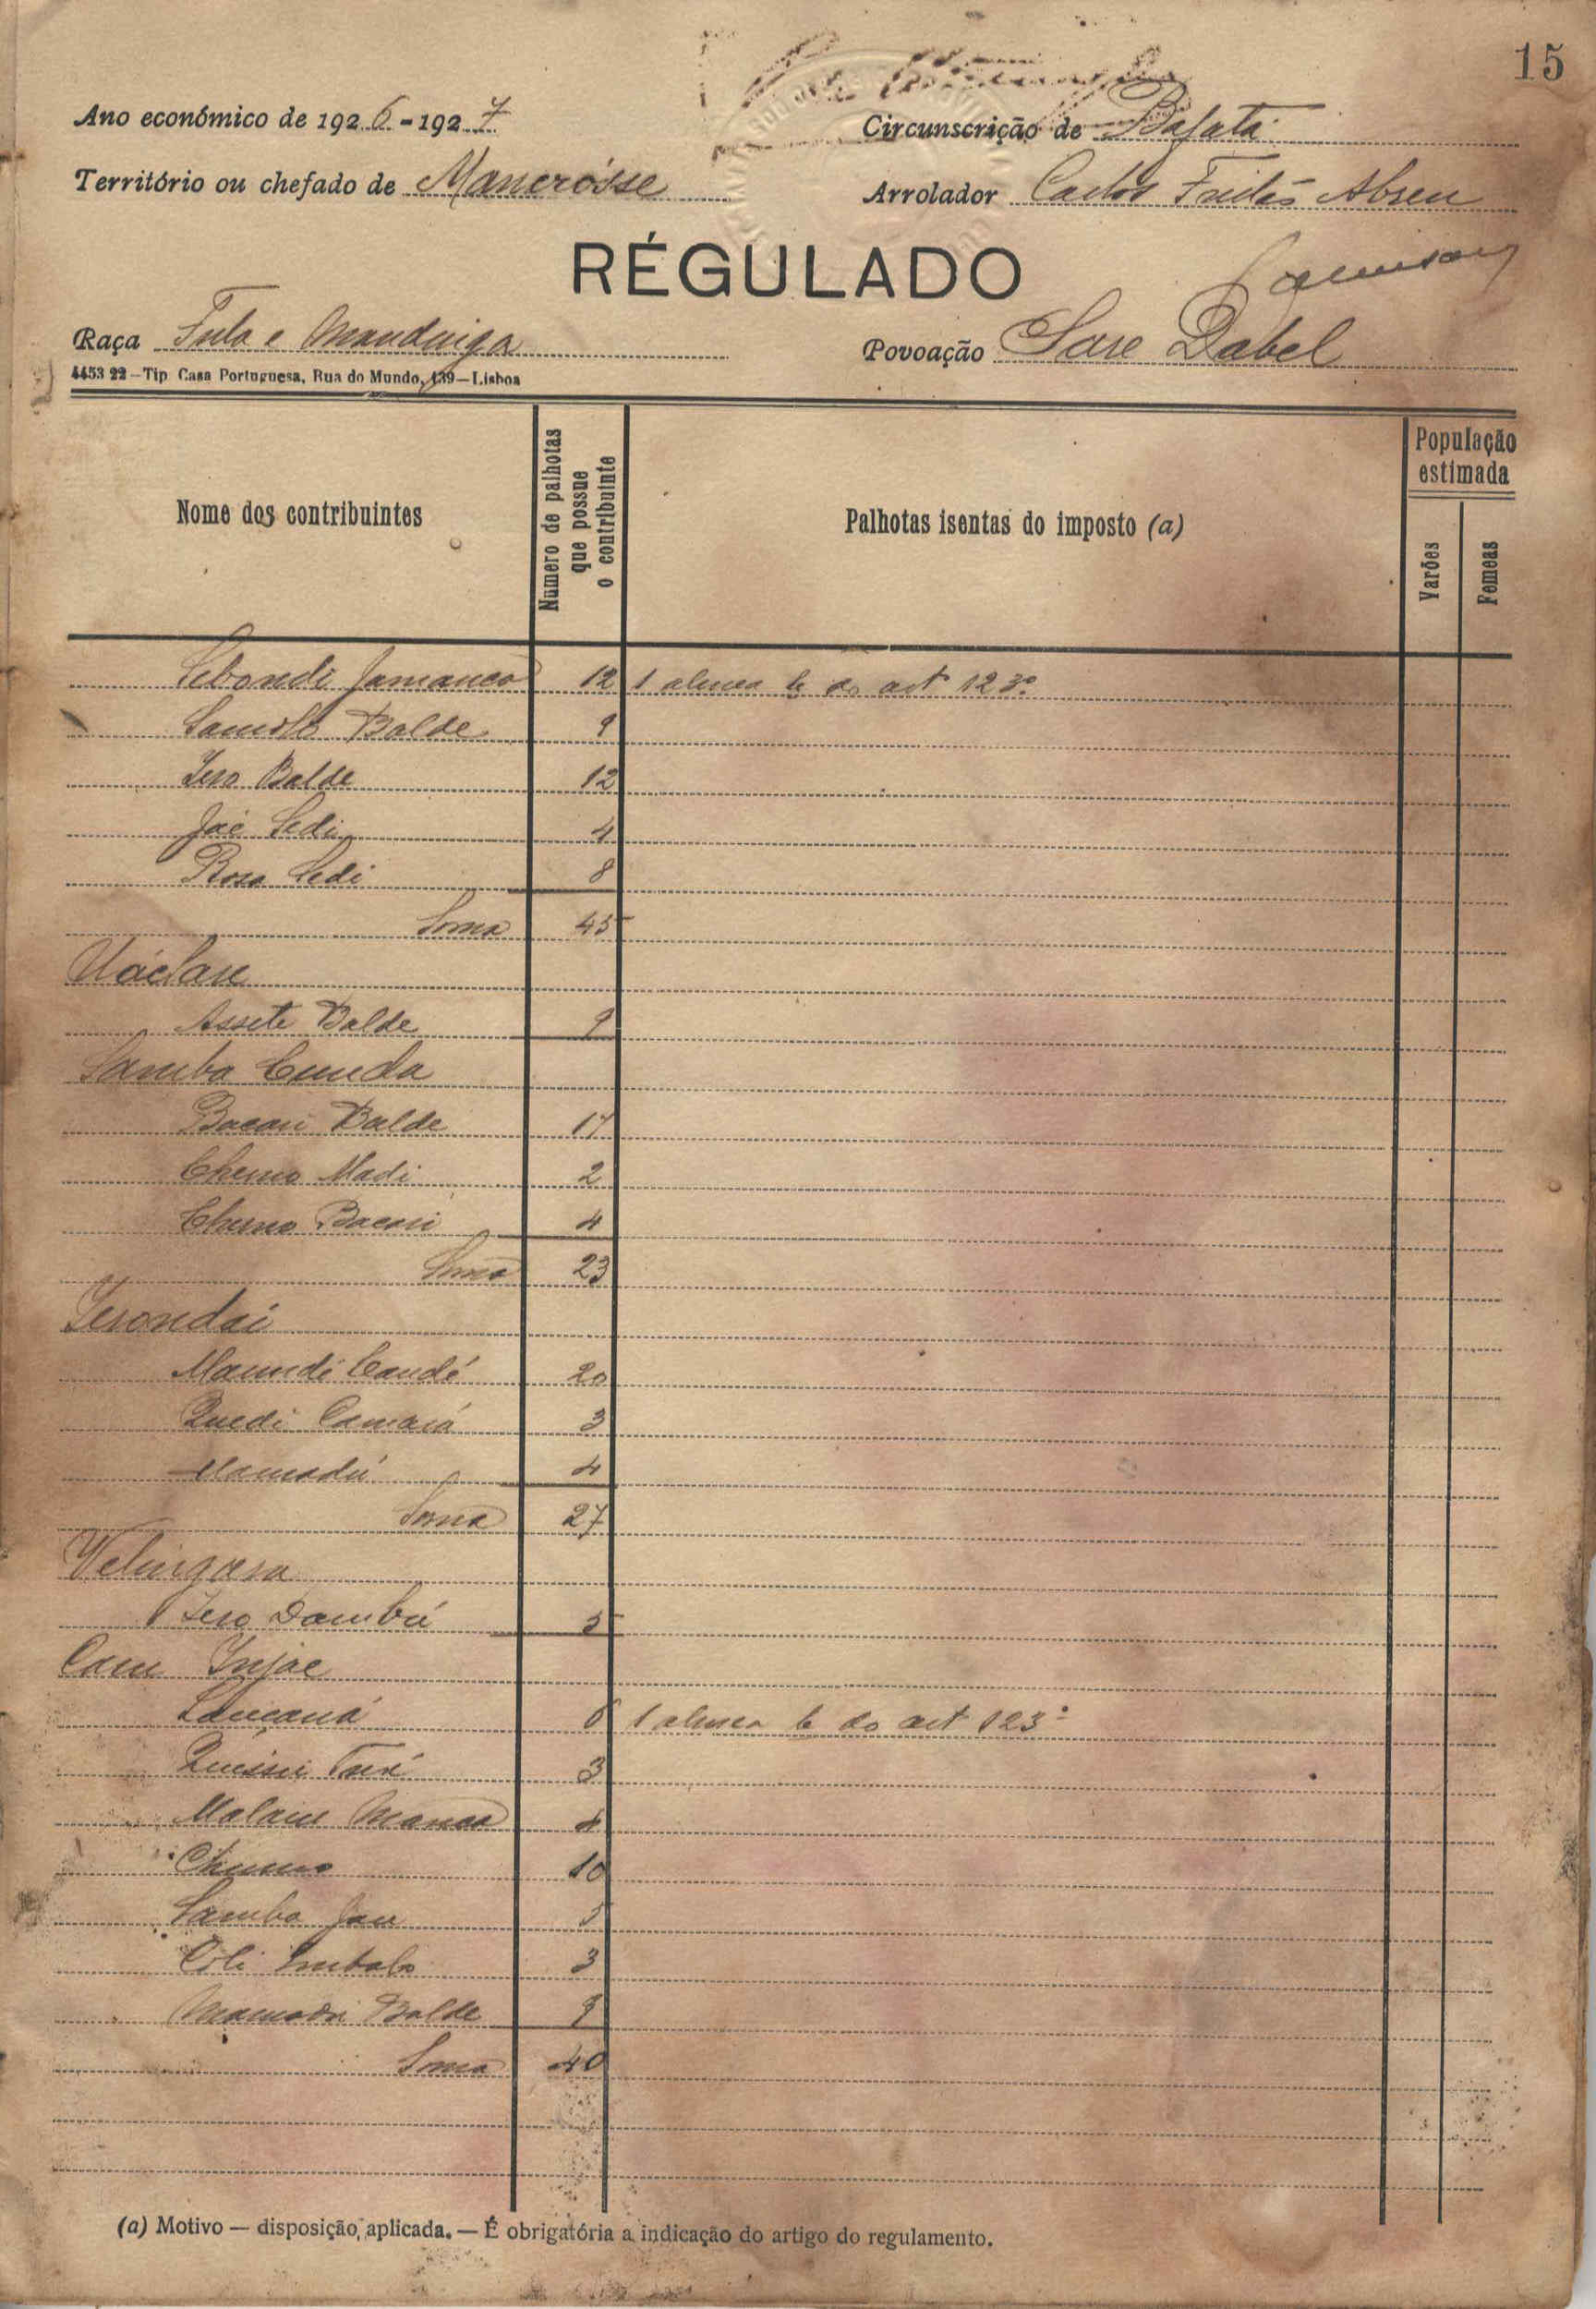 15
Ano económico de 1926-1927
Circunscrição de Bafatá
Território ou chefado de Mancrósse
Arrolador Carlos Freitas Abreu
RÉGULADO
Raça Fula e Mandinga
Povoação Sare Dabel
4453 22 — Tip Casa Portuguesa, Rua do Mundo, 139 — Lisboa
Nome dos contribuintes
Número de palhotas que possue o contribuinte
Palhotas isentas do imposto (a)
População estimada
Varões
Femeas
Sebondi Jamanca 12 1 alinea b do art 123º
Balde 9
Iero Balde 12
Jáe Sedi 4
Sedi 8
Soma 45
Uáclare
Assete Balde 9
Samba Cunda
Bacari Balde 17
Cherno Madi 2
Cherno Bacari 4
Soma 23
Ierondai
Maundi Candé 20
Quedi Camará 3
Mamadú 4
Soma 27
Velingara
Iero Dambú 5
Cam Injae
Lancaná 6 1 alinea b do art 123º
3
Malam Manca 4
Cherno 10
Samba Jau 5
Coli Embalo 3
Mamadú Balde 9
Soma 40
(a) Motivo — disposição aplicada. — É obrigatória a indicação do artigo do regulamento.